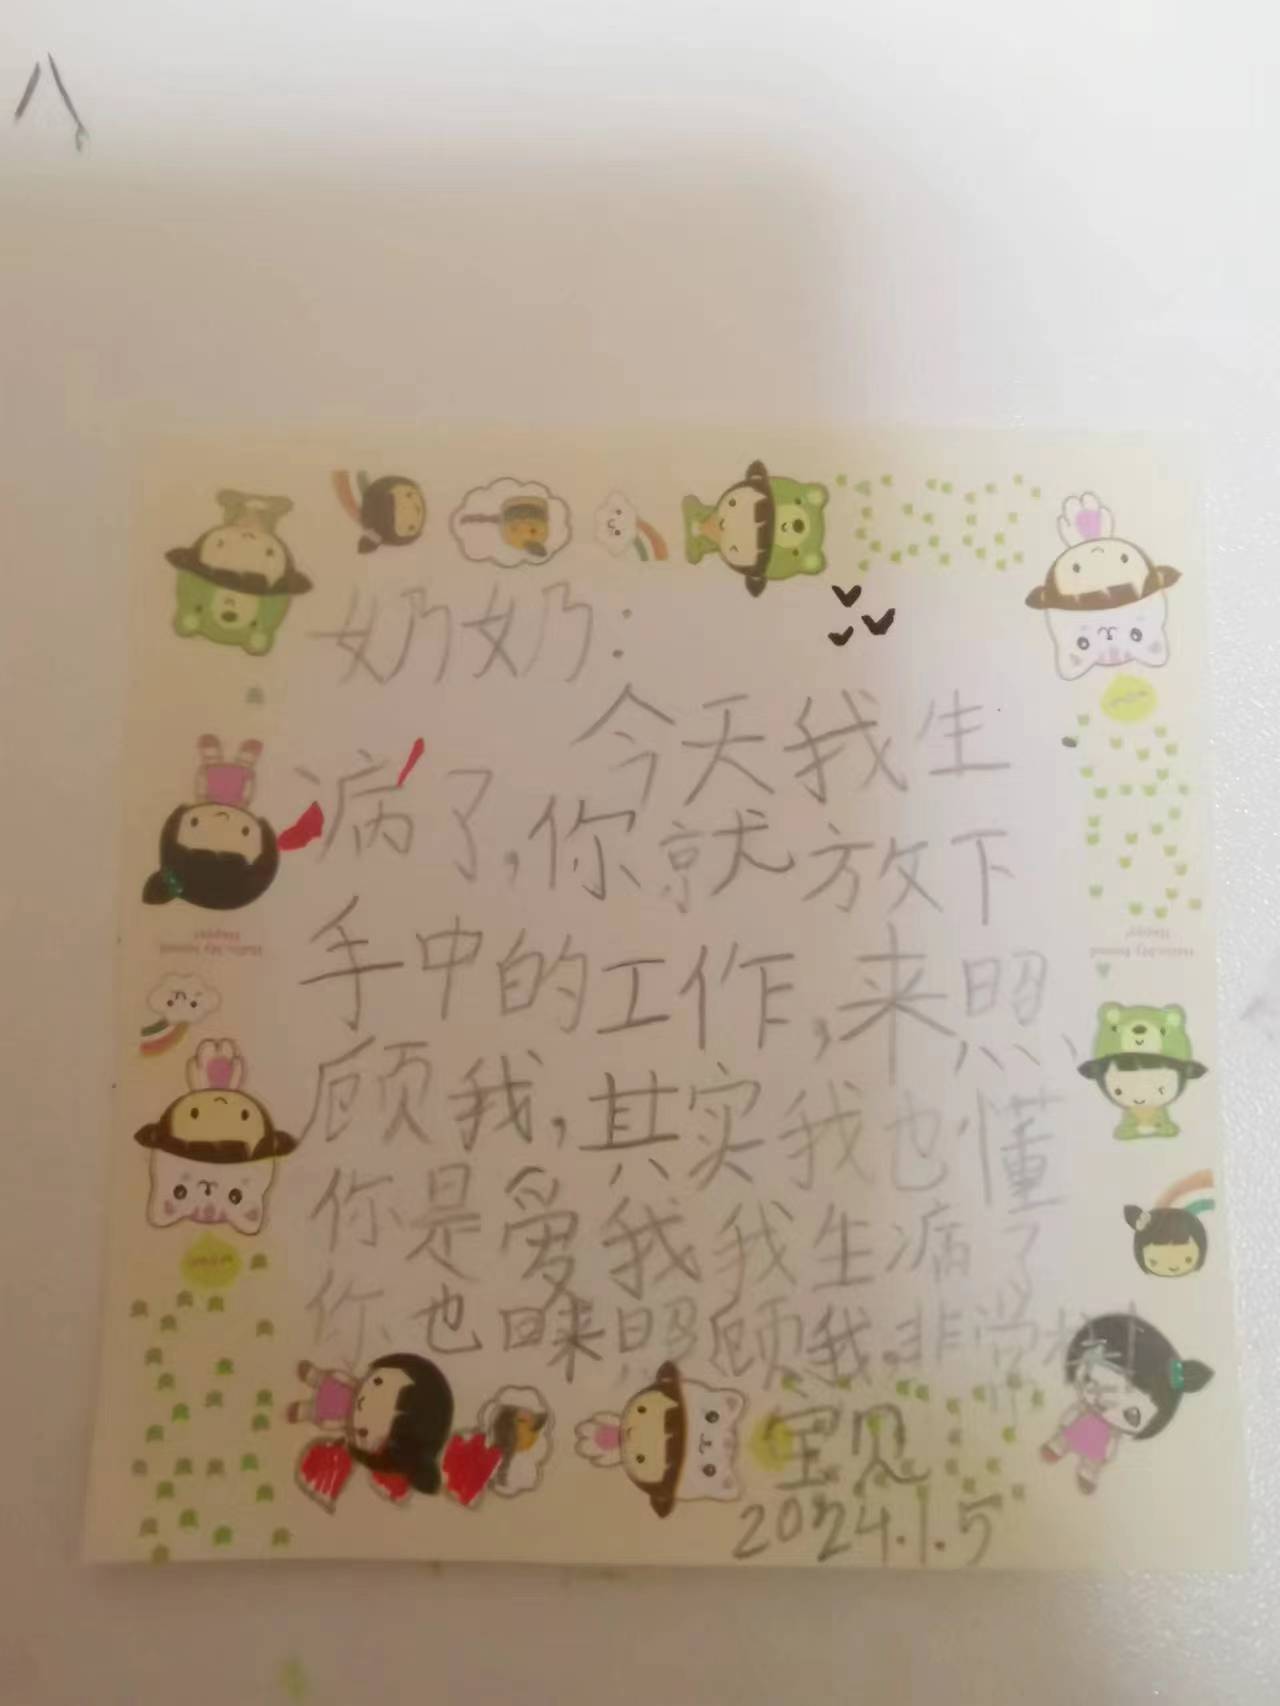 八
奶奶：
今天我生
病了，你就放下
手中的工作，来照
顾我，其实我也懂
你是爱我我生病了
你也回来照顾我，非常
宝贝
2024.1.5